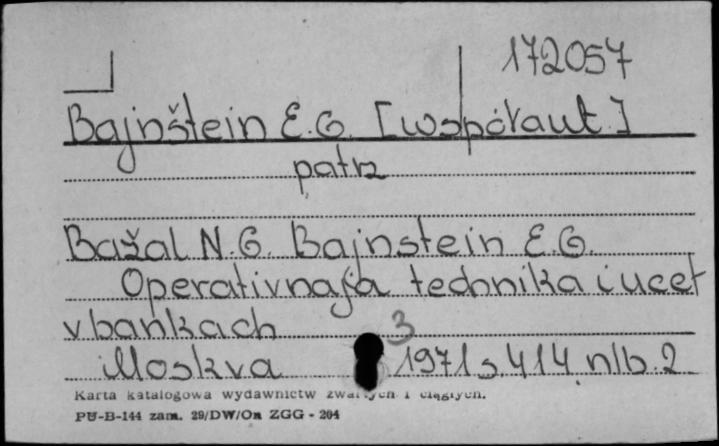 172057
Bajnštein E.G. [współaut.]
patrz
Bažal N.G. Bajnstein E.G.
Operativnaja technika i ucet
v bankach
3
Moskva 1971 s 414 nlb. 2
Karta katalogowa wydawnictw zwartych i ciągłych.
PU-B-144 zam. 29/DW/On ZGG - 204